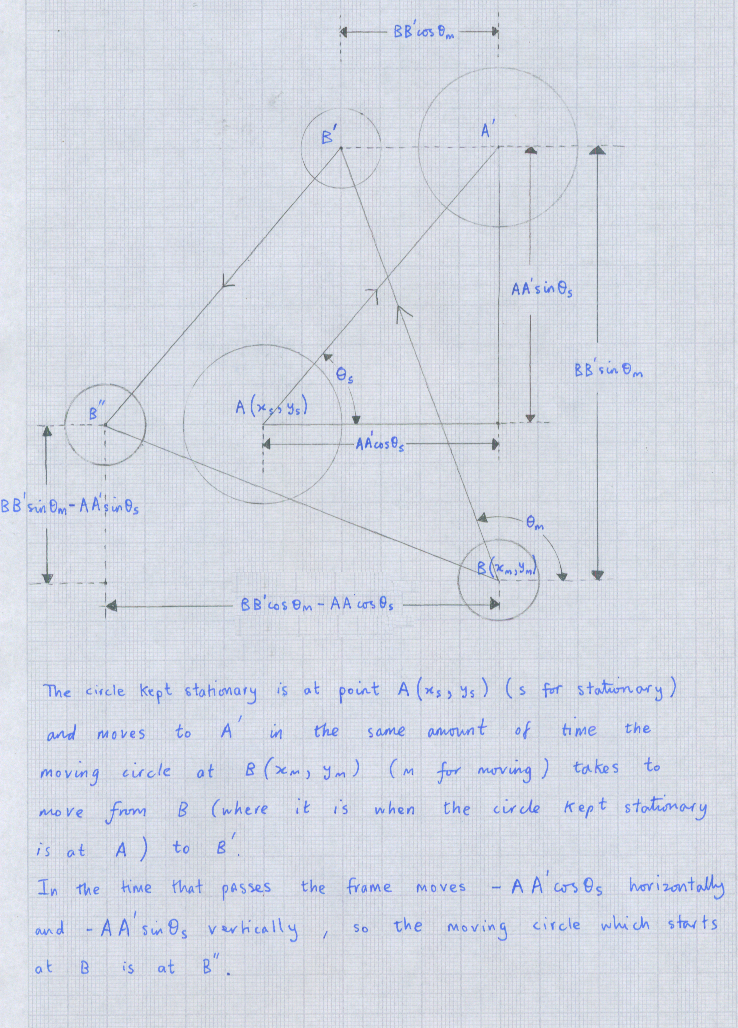 BB'cosθm
B'
A'
AA'sinθs
BB'sinθm
θs
B''
A(xs, ys)
AA'cosθs
BB'sinθm-AA'sinθs
θm
B(xm, ym)
BB'cosθm - AA'cosθs
The circle kept stationary is at point A(xs, ys) (s for stationary)
and moves to A' in the same amount of time the
moving circle at B(xm, ym) (m for moving) takes to
move from B (where it is when the circle kept stationary
is at A) to B'.
In the time that passes the frame moves -AA'cosθs horizontally
and -AA'sinθs vertically, so the moving circle which starts
at B is at B''.